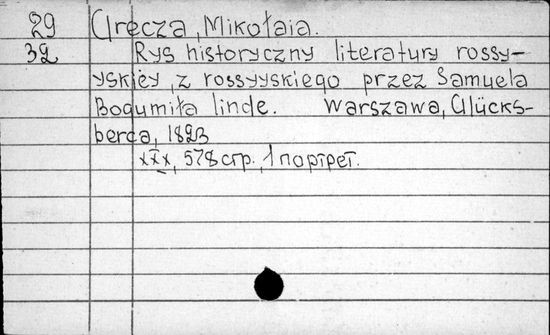 29 Grecza, Mikołaia.
32 Rys historyczny literatury rossy-
yskiey, z rossyyskiego przez Samuela
Bogumiła linde. Warszawa, Glücks-
berga, 1823
xxx, 578 стр., 1 портрет.